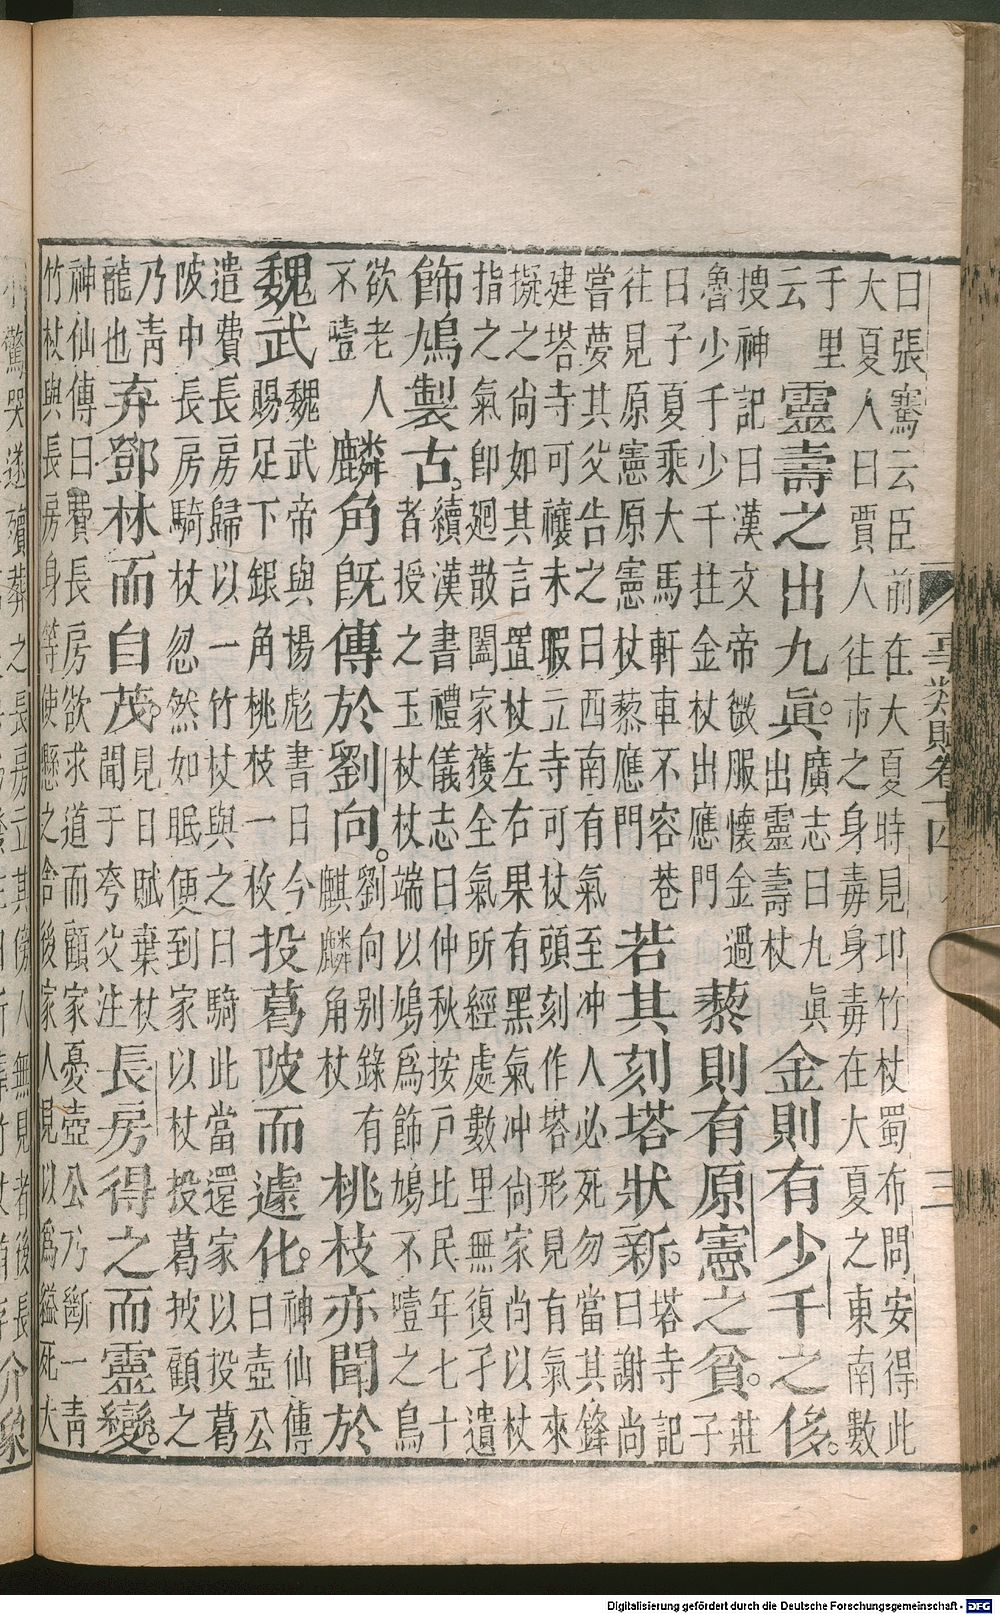 事類賦卷十四 三
曰張騫云臣前在大夏時見卭竹杖蜀布問安得此
大夏人曰賈人往市之身毒身毒在大夏之東南數
千里
云
靈壽之出九眞。
廣志曰九眞
出靈壽杖
金則有少千之侈。
搜神記曰漢文帝微服懷金過
魯少千少千拄金杖出應門
藜則有原憲之貧。
莊
子
曰子夏乘大馬軒車不容巷
往見原憲原憲杖藜應門
若其刻塔狀新。
塔寺記
曰謝尚
嘗夢其父告之曰西南有氣至冲人必死勿當其鋒
建塔寺可禳未暇立寺可杖頭刻作塔形見有氣來
擬之尚如其言置杖左右果有黑氣冲尚家尚以杖
指之氣卽廻散闔家獲全氣所經處數里無復孑遺
飾鳩製古。
續漢書禮儀志曰仲秋按戶比民年七十
者授之玉杖杖端以鳩爲飾鳩不噎之鳥
欲老人
不噎
麟角旣傳於劉向。
劉向别錄有
麒麟角杖
桃枝亦聞於
魏武
魏武帝與楊彪書曰今
賜足下銀角桃枝一枚
投葛陂而遽化。
神仙傳
曰壺公
遣費長房歸以一竹杖與之曰騎此當還家以投葛
陂中長房騎杖忽然如眠便到家以杖投葛披顧之
乃靑
龍也
弃鄧林而自茂。
見日賦棄杖
聞于夸父注
長房得之而靈變。
神仙傳曰費長房欲求道而顧家憂壺公乃斷一靑
竹杖與長房身等使懸之舍後家人見以爲縊死大
小驚哭遂殯葬之長房立其傍人無見者後長
介象
Digitalisierung gefördert durch die Deutsche Forschungsgemeinschaft - DFG